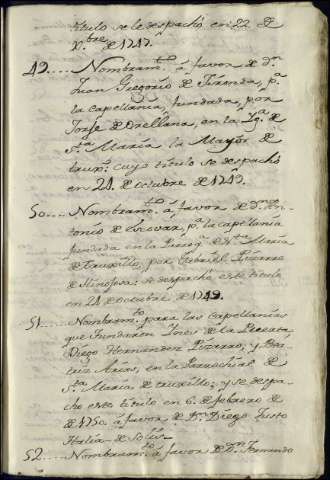 título se le despachó en 22 de
Xbre de 1749.
49..... Nombramto á favor de Dn
Juan Gregorio de pa
la capellanía, fundada, por
Jorge de Orellana, en la Iga de
Sta María la Mayor de
trux.o: cuyo título se despachó
en 21 de octubre de 1749.
50.... Nombramto á favor de Dn An-
tonio de Escovar, pa la capellanía
fundada en la de Sta María
de Truxillo, por Gabriel Pizarro
de Hinojosa: se despachó este título
en 21 de octubre, de 1749.
51..... Nombramto para las capellanías
que fundaron Ines de la
Diego Hernandez Pizarro, y Bea-
triz Arias, en la Parrochial de
Sta María de truxillo: y se despa-
chó este título en 6 de febrero de
de 1750. á favor, de Dn Diego Justo
52..... Nombramto á favor de Dn Fernando